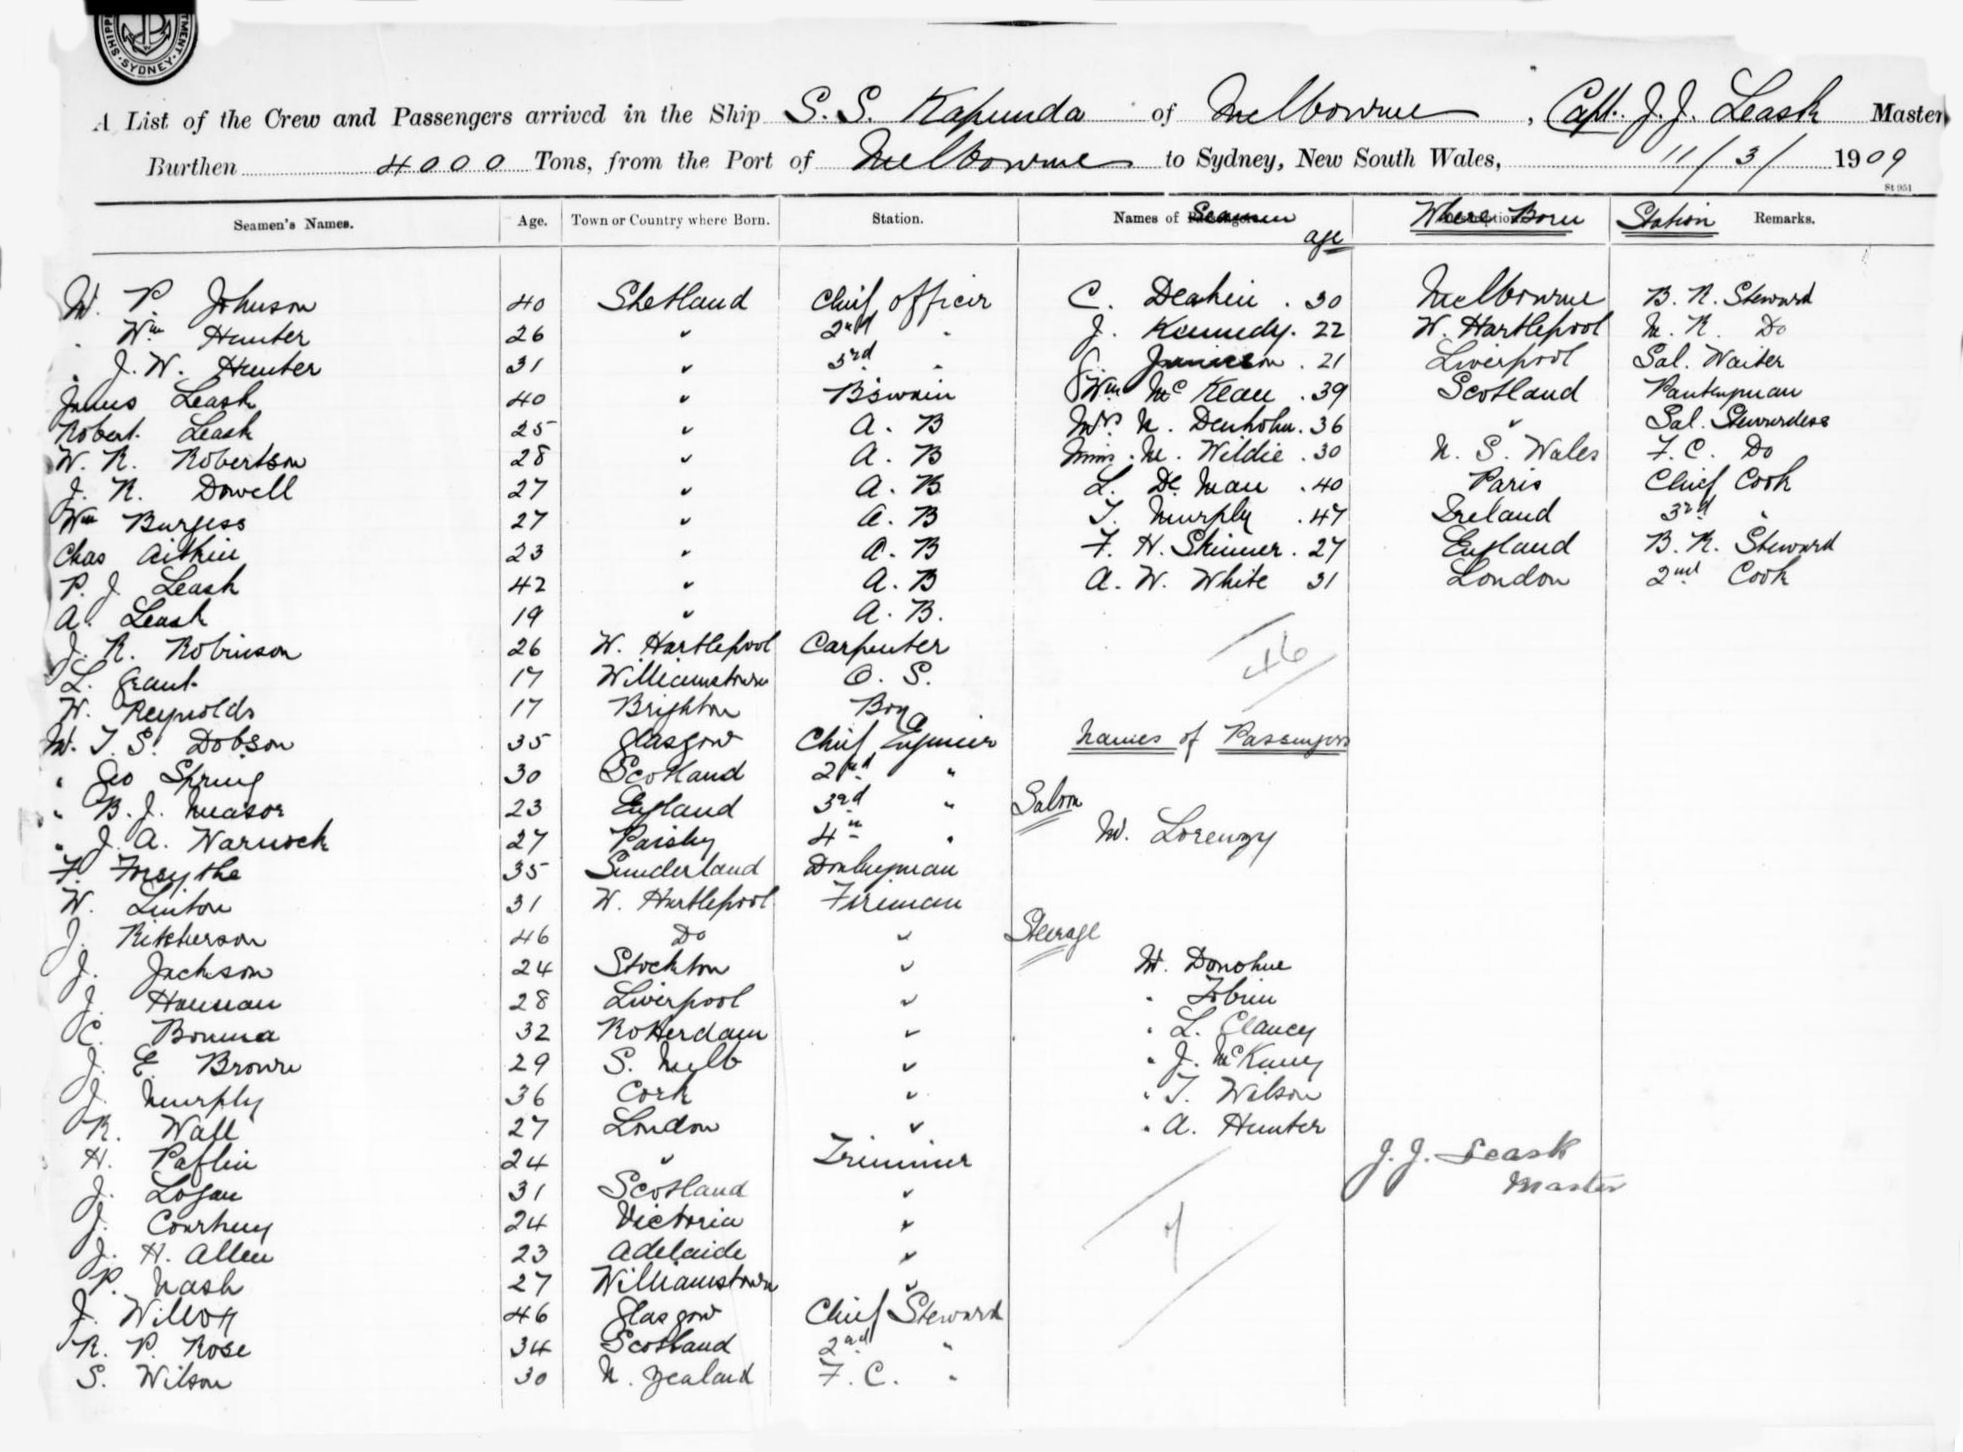 SHIPPING DEPARTMENT. SYDNEY.
A List of the Crew and Passengers arrived in the Ship S.S. Kapunda of Melbourne, Capt. J.J. Leask Master
Burthen 4000 Tons, from the Port of Melbourne to Sydney, New South Wales, 11/3/ 1909
St 951
Seamen's Names. Age. Town or Country where Born. Station. Names of Seamen age Where Born Station Remarks.
M. P. Johnson 40 Shetland Chief Officer C. Deakin . 30 Melbourne B. R. Steward
" Wm Hunter 26 " 2nd " J. Kennedy . 22 W. Hartlepool M. R. Do
" J. W. Hunter 31 " 3rd " 21 Liverpool Sal. Waiter
James Leask 40 " B'swain Wm McKean . 39 Scotland Pantryman
Robert Leask 25 " A. B Mrs N. Denholm . 36 " Sal. Stewardess
W. R. Robertson 28 " A. B Miss M. Wildie . 30 N. S. Wales F. C. Do
J. R. Dowell 27 " A. B L. De Man . 40 Paris Chief Cook
Wm Burgess 27 " A. B T. Murphy . 47 Ireland 3rd "
Chas Aitkin 23 " A. B F. H. Skinner . 27 England B. R. Steward
P. J. Leask 42 " A. B A. W. White 31 London 2nd Cook
A. Leask 19 " A. B.
J. R. Robinson 26 W. Hartlepool Carpenter 46
L. Grant 17 Williamstown O. S.
W. Reynolds 17 Brighton Boy
M. T. S. Dobson 35 Glasgow Chief Engineer Names of Passengers
" Geo Spring 30 Scotland 2nd "
" B. J. Measor 23 England 3rd " Saloon
" J. A. Warnock 27 Paisley 4th " M. Lorenzy
F. Forsythe 35 Sunderland Donkeyman
W. Linton 31 W. Hartlepool Fireman
J. Ritcherson 46 Do " Steerage
J. Jackson 24 Stockton " M. Donohue
J. Hannan 28 Liverpool " " Tobin
C. Bouma 32 Rotterdam " " L. Clancy
J. E. Browne 29 S. Melb " " J. McKiney
J. Murphy 36 Cork " " T. Wilson
R. Wall 27 London " " A. Hunter
H. Paflin 24 " Trimmer J. J. Leask
J. Logan 31 Scotland " Master
J. Courtney 24 Victoria " 7
J. H. Allen 23 Adelaide "
P. Nash 27 Williamstown "
J. Willott 46 Glasgow Chief Steward
R. P. Rose 34 Scotland 2nd "
S. Wilson 30 N. Zealand F. C. "